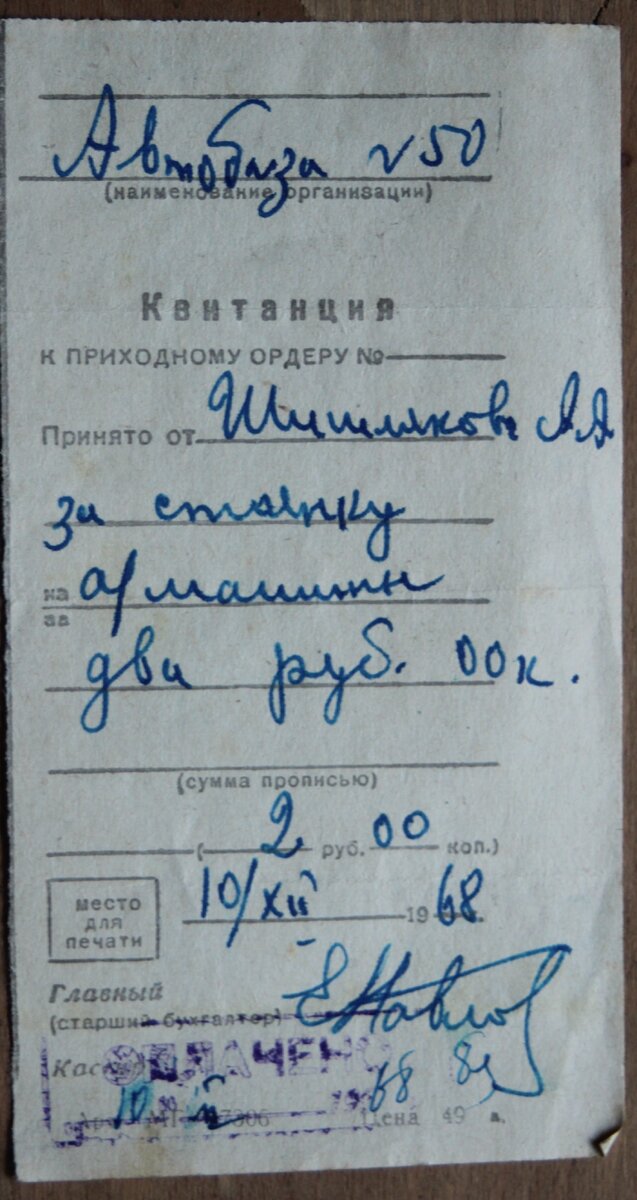 Автобаза N 50
(наименование организации)
Квитанция
К ПРИХОДНОМУ ОРДЕРУ №
Принято от Шишлякова А.Я.
за стоянку
на а/машины
за
два руб. 00 к.
(сумма прописью)
( 2 руб. 00 коп.)
место для печати
10/XII 1968.
Главный
(старший бухгалтер)
Кассир
ОПЛАЧЕНО
10 68
Цена 49